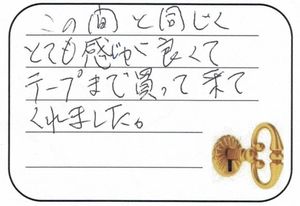 この間と同じく
とても感じが良くて
テープまで買って来て
くれました。